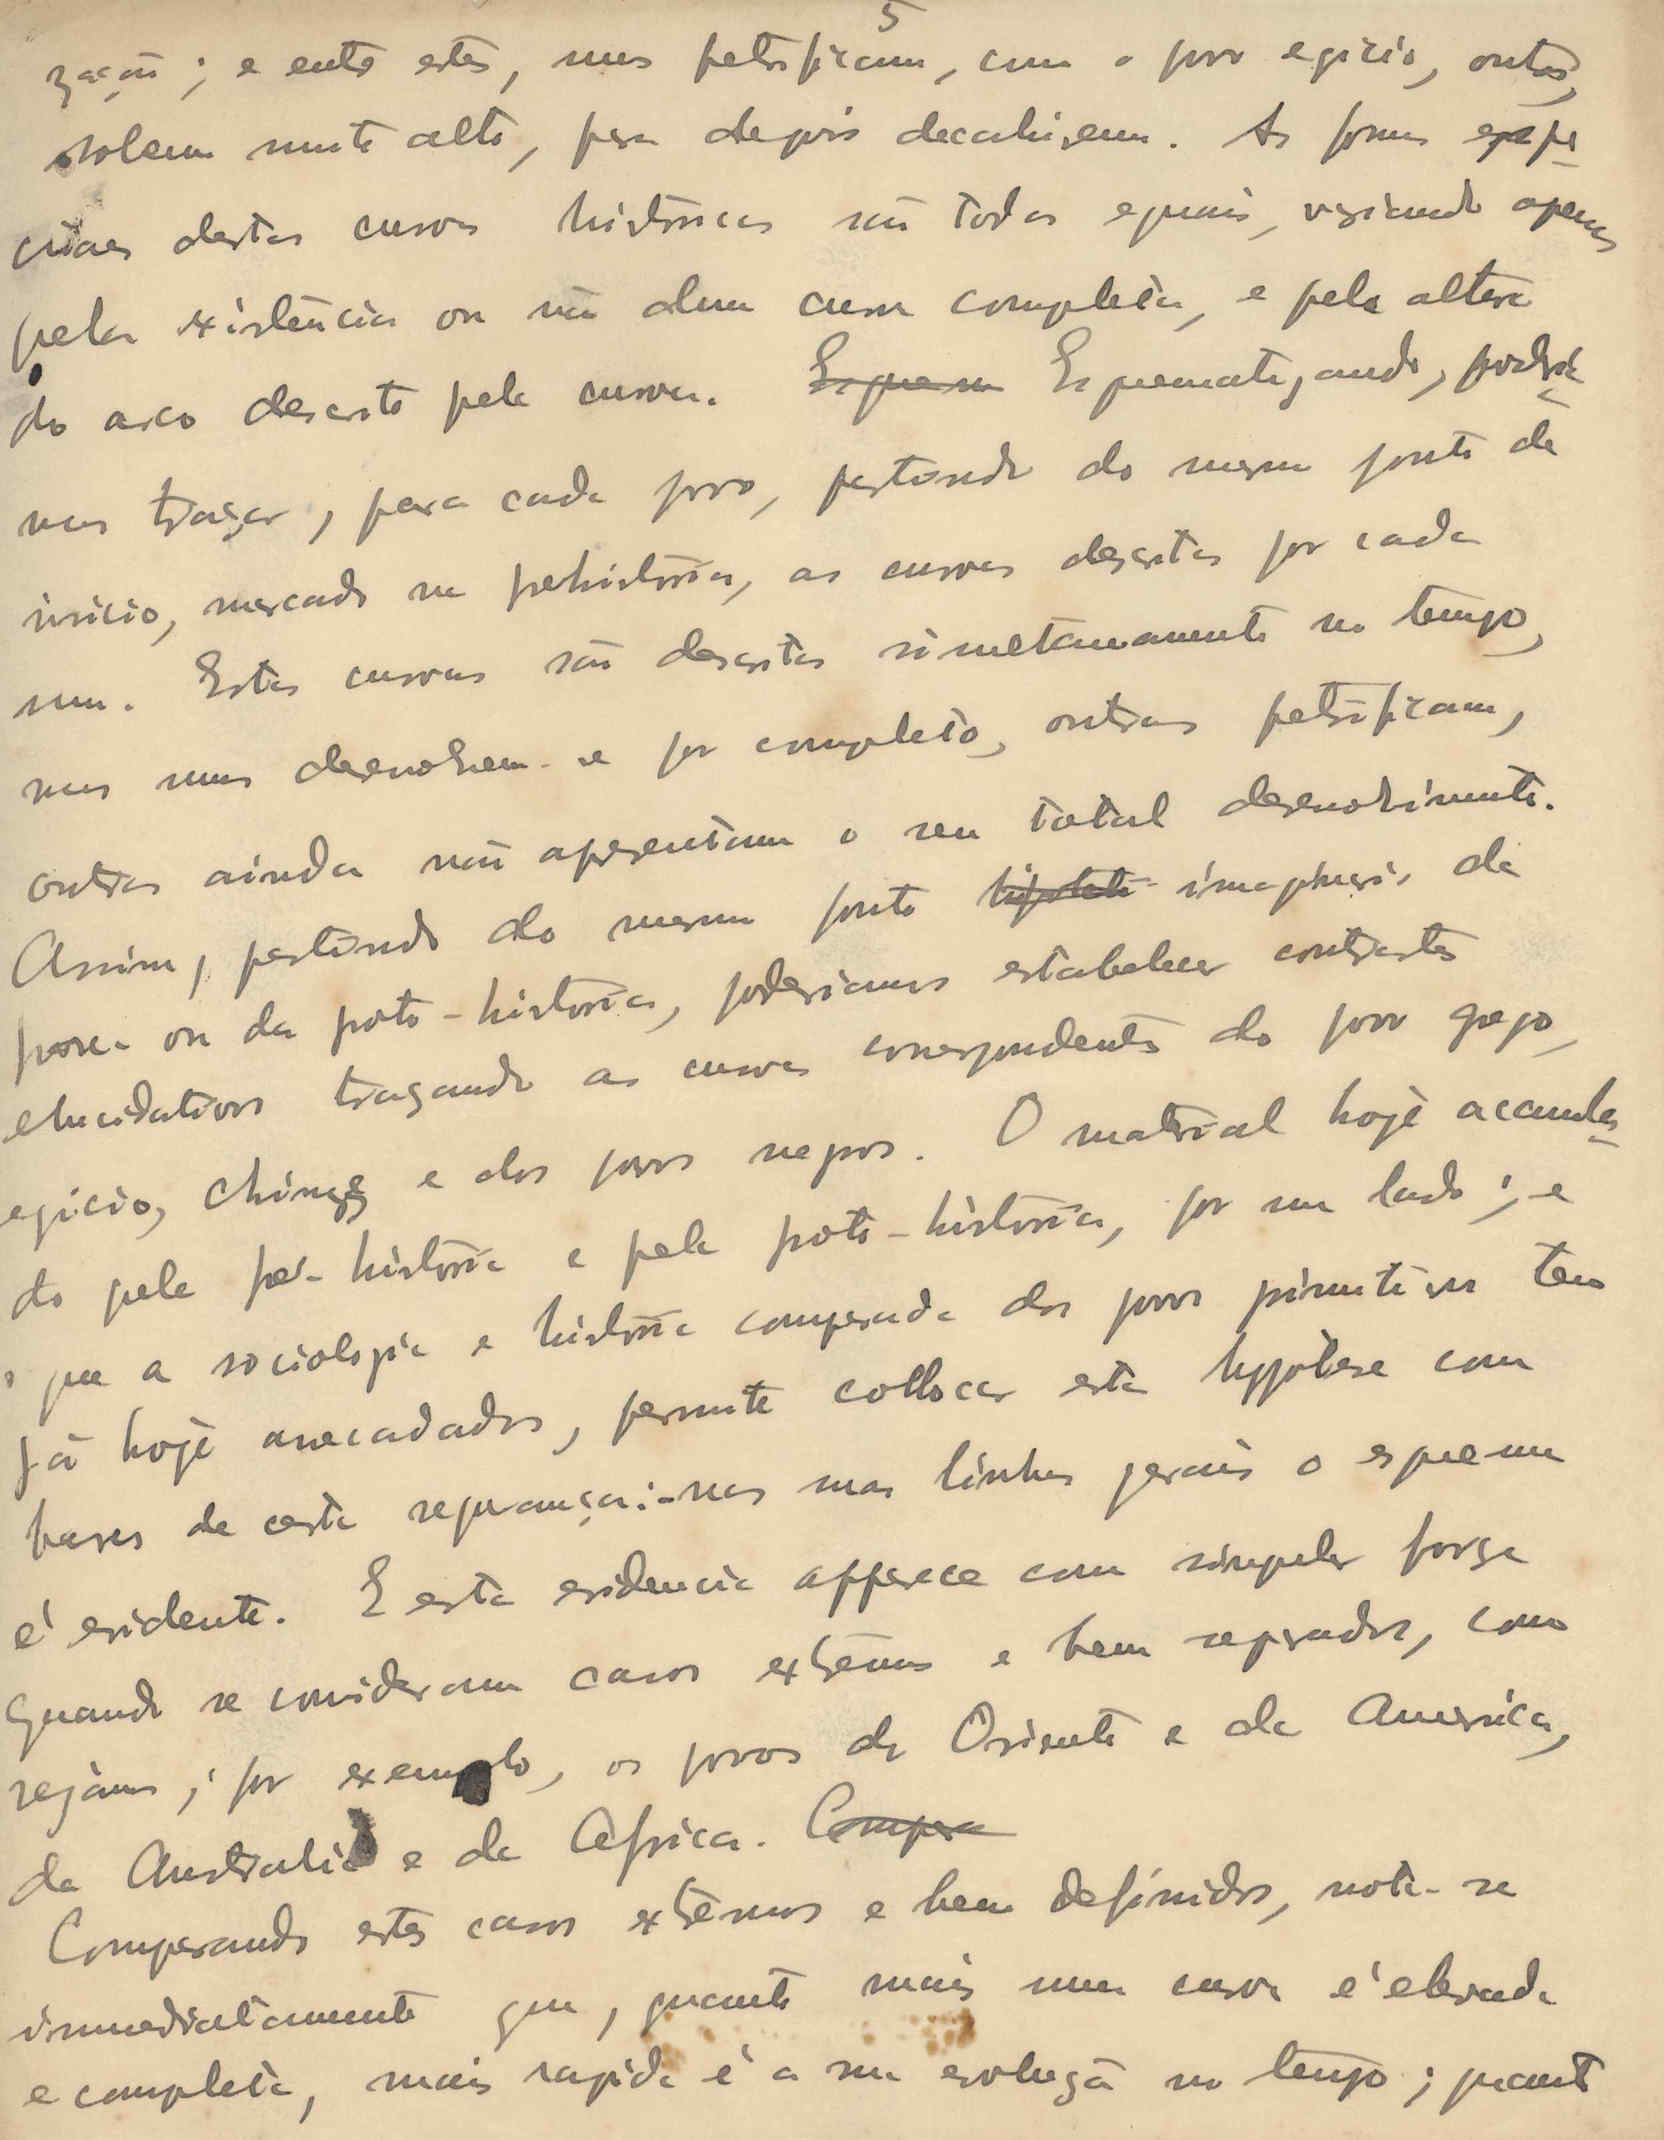 5
zação; e entre estes, uns petrificam, como o povo egicio, outros,
sobem muito alto, para depois decahirem. As formas
ciaes destas curvas históricas são todas eguais, variando apenas
pela existência ou não duma curva completa, e pela altura
do arco descrito pela curva. Esquema Esquematizando, poderia-
mos traçar, para cada povo, partindo do mesmo ponto de
inicio, marcado na prehistória, as curvas descritas por cada
um. Estas curvas são descritas simultaneamente no tempo,
mas umas desenvolvem-se por completo, outras petrificam,
outras ainda não apresentam o seu total desenvolvimento.
Assim, partindo do mesmo ponto imaginario da
ou da proto-história, poderiamos estabelecer contrastes
elucidativos traçando as curvas correspondentes do povo grego,
egicio, chinez e dos povos negros. O material hoje acumula-
do pela pre-história e pela proto-história, por um lado; e
o que a sociologia e história comparada dos povos primitivos tem
já hoje arrecadados, permite collocar esta hypótese com
bases de certa segurança:-nas suas linhas gerais o esquema
é evidente. E esta evidencia apparece com singular força
quando se consideram casos extremos e bem separados, como
sejam; por exemplo, os povos do Oriente e da America,
da Australia e da Africa. Compara
Comparando estes casos extremos e bem definidos, nota-se
immediatamente que, quanto mais uma curva é elevada
e completa, mais rapida é a sua evolução no tempo; quanto